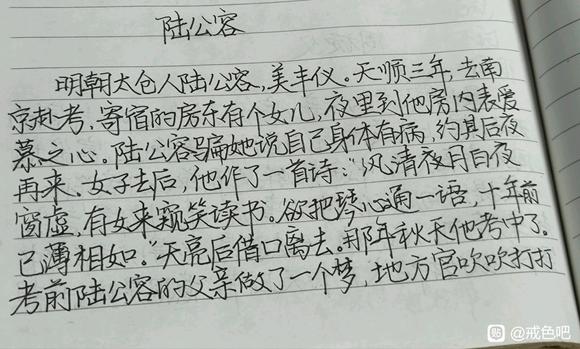 陆公容
明朝太仓人陆公容,美丰仪。天顺三年,去南
京赴考,寄宿的房东有个女儿,夜里到他房内表爱
慕之心。陆公容骗她说自己身体有病,约其后夜
再来、女子去后,他作了一首诗:"风清夜月白夜
窗虚,有女来窥笑读书。欲把琴心通一语,十年前
已薄相如。"天亮后借口离去。那年秋天他考中了。
考前陆公容的父亲做了一个梦,地方官吹吹打打
贴 @戒色吧